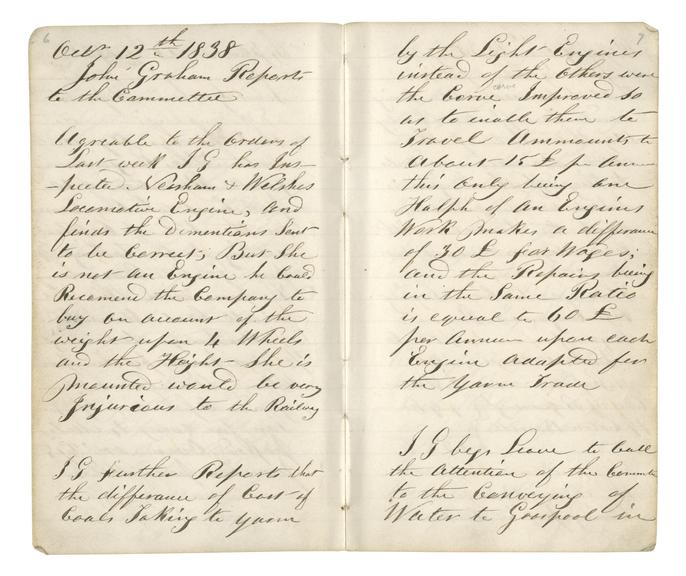 6
Octr 12th 1838
John Graham Reports
to the Committee
Agreable to the Orders of
Last week J G has Ins-
-pected Neasham & Welshes
Locomotive Engine, and
finds the Dimentians Sent
to be Correct; But She
is not an Engine he Could
Recomend the Company to
buy on account of the
weight upon 4 Wheels
and the Height She is
mounted would be very
Injurious to the Railway
J G further Reports that
the differance of Cost of
Coals Taking to Yarm
7
by the Light Engines
instead of the Others were
the Corve Improved So
as to inable them to
Travel Ammounts to
About 15 £ pr Ann
this Only being one
Halph of an Engines
Work makes a differance
of 30 £ for Wages;
and the Repairs being
in the Same Ratio
is equal to 60 £
per Annum upon each
Engine adapted for
the Yarm Trade
J G begs Leave to Call
the Attention of the Committe
to the Conveying of
Water to Goospool in